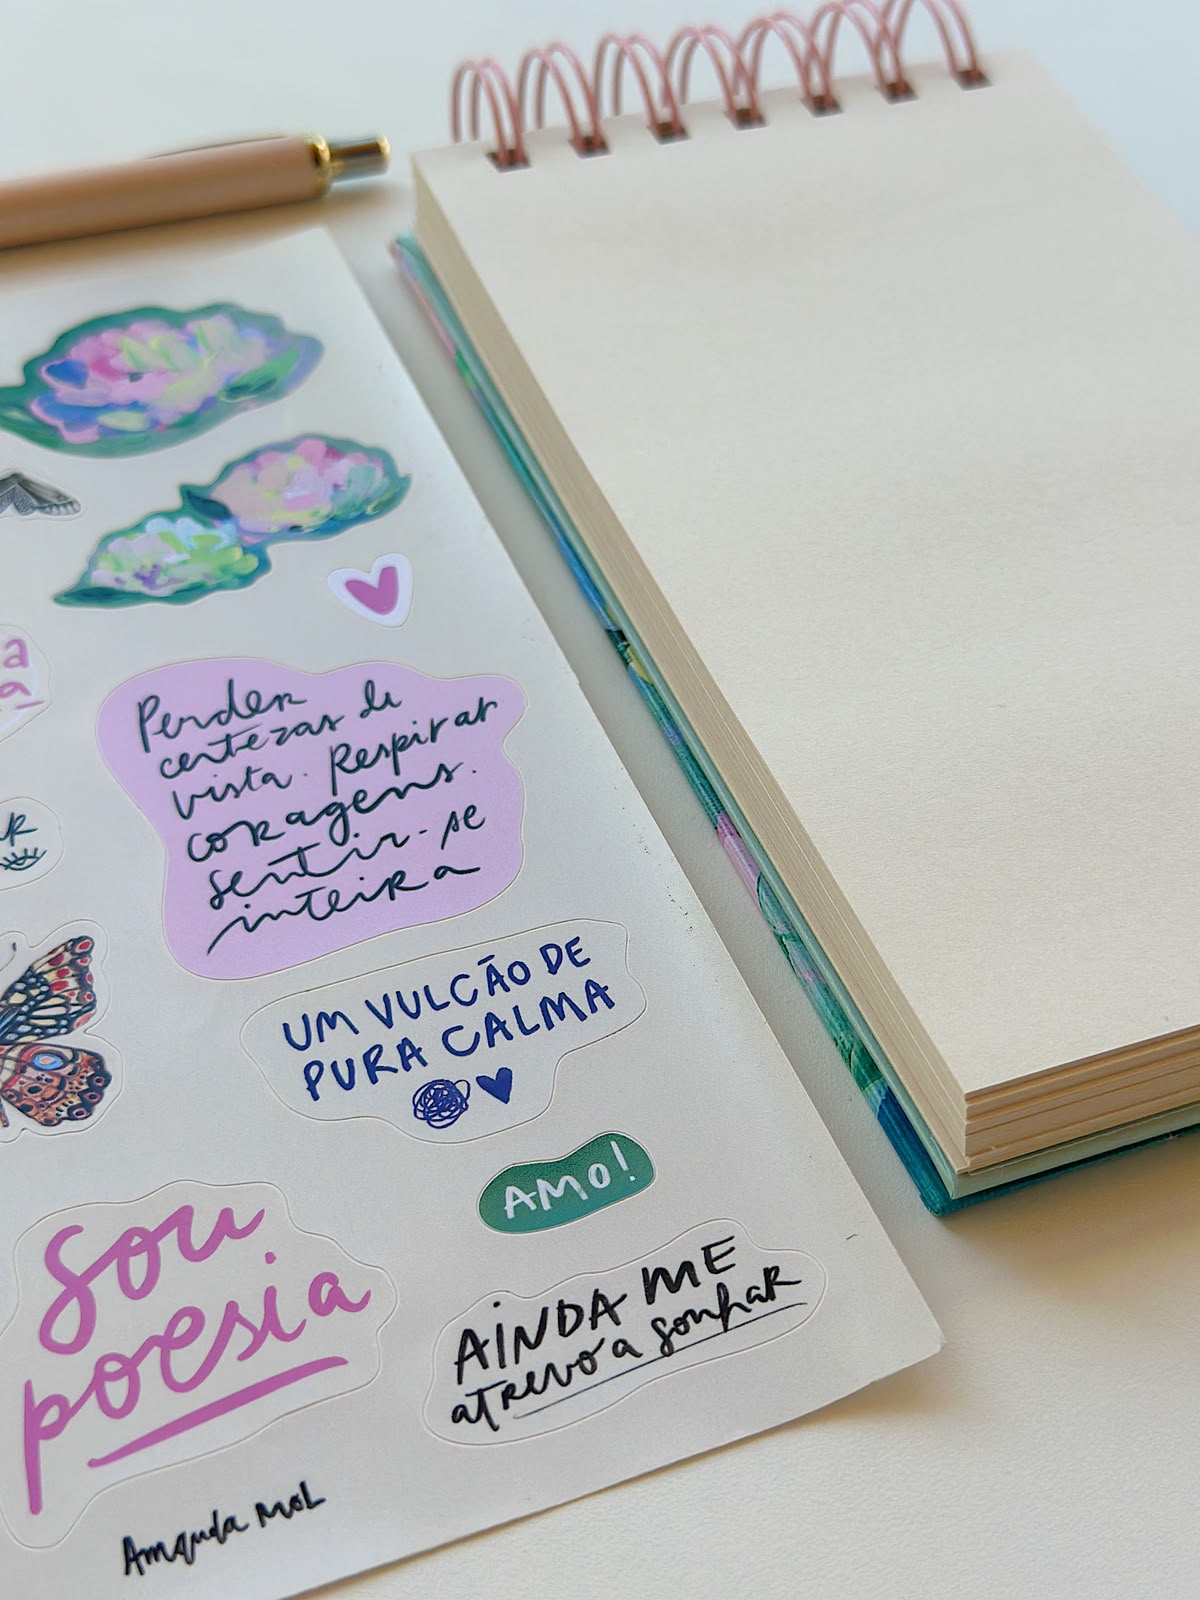 Perder
certezas de
vista. Respirar
coragens.
sentir-se
inteira
UM VULCÃO DE
PURA CALMA
AMO!
sou
poesia
AINDA ME
atrevo a sonhar
Amanda MOL